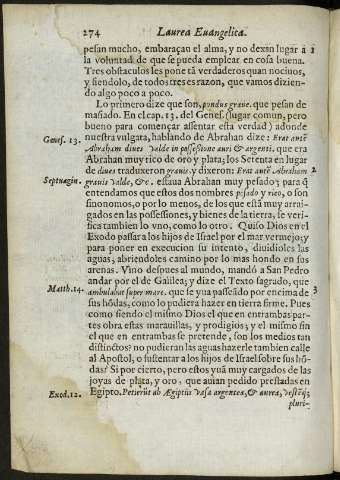 274 Laurea Euangelica.
pesan mucho, embaraçan el alma, y no dexan lugar à 1
la voluntad de que se pueda emplear en cosa buena.
Tres obstaculos les pone tã verdaderos quan nociuos,
y siendolo, de todos tres es razon, que vamos dizien-
do algo poco a poco.
Lo primero dize que son, pondus graue. que pesan de
masiado. En el cap. 13. del Genes. (lugar comun, pero
bueno para començar assentar esta verdad) adonde
Genes. 13. nuestra vulgata, hablando de Abrahan dize: Erat autẽ
Abraham diues valde in possessione auri & argenti. que era
Abrahan muy rico de oro y plata; los Setenta en lugar
de diues traduxeron grauis. y dizeron: Erat autẽ Abraham 2
Septuagin. grauis valde, &c. estaua Abrahan muy pesado; para q̃
entendamos que estos dos nombres pesado y rico, o son
sinonomos, o por lo menos, de los que està muy arrai-
gados en las possessiones, y bienes de la tierra, se veri-
fica tambien lo vno, como lo otro. Quiso Dios en el
Exodo passar a los hijos de Israel por el mar vermejo; y
para poner en execucion su intento, diuidioles las
aguas, abriendoles camino por lo mas hondo en sus
arenas. Vino despues al mundo, mandó a San Pedro
andar por el de Galilea; y dize el Texto sagrado, que
Matth. 14. ambulabat super mare. que se yua passeãdo por encima de 3
sus hõdas, como lo pudiera hazer en tierra firme. Pues
como siendo el mismo Dios el que en entrambas par-
tes obra estas marauillas, y prodigios; y el mismo fin
el que en entrambas se pretende, son los medios tan
distinctos? no pudieran las aguas hazerle tambien calle
al Apostol, o sustentar a los hijos de Israel sobre sus hõ-
das? Si por cierto, pero estos yuã muy cargados de las
joyas de plata, y oro, que auian pedido prestadas en
Exod. 12. Egipto. Petierũt ab Ægiptiis vasa argentea, & aurea, vestẽq;
pluri-